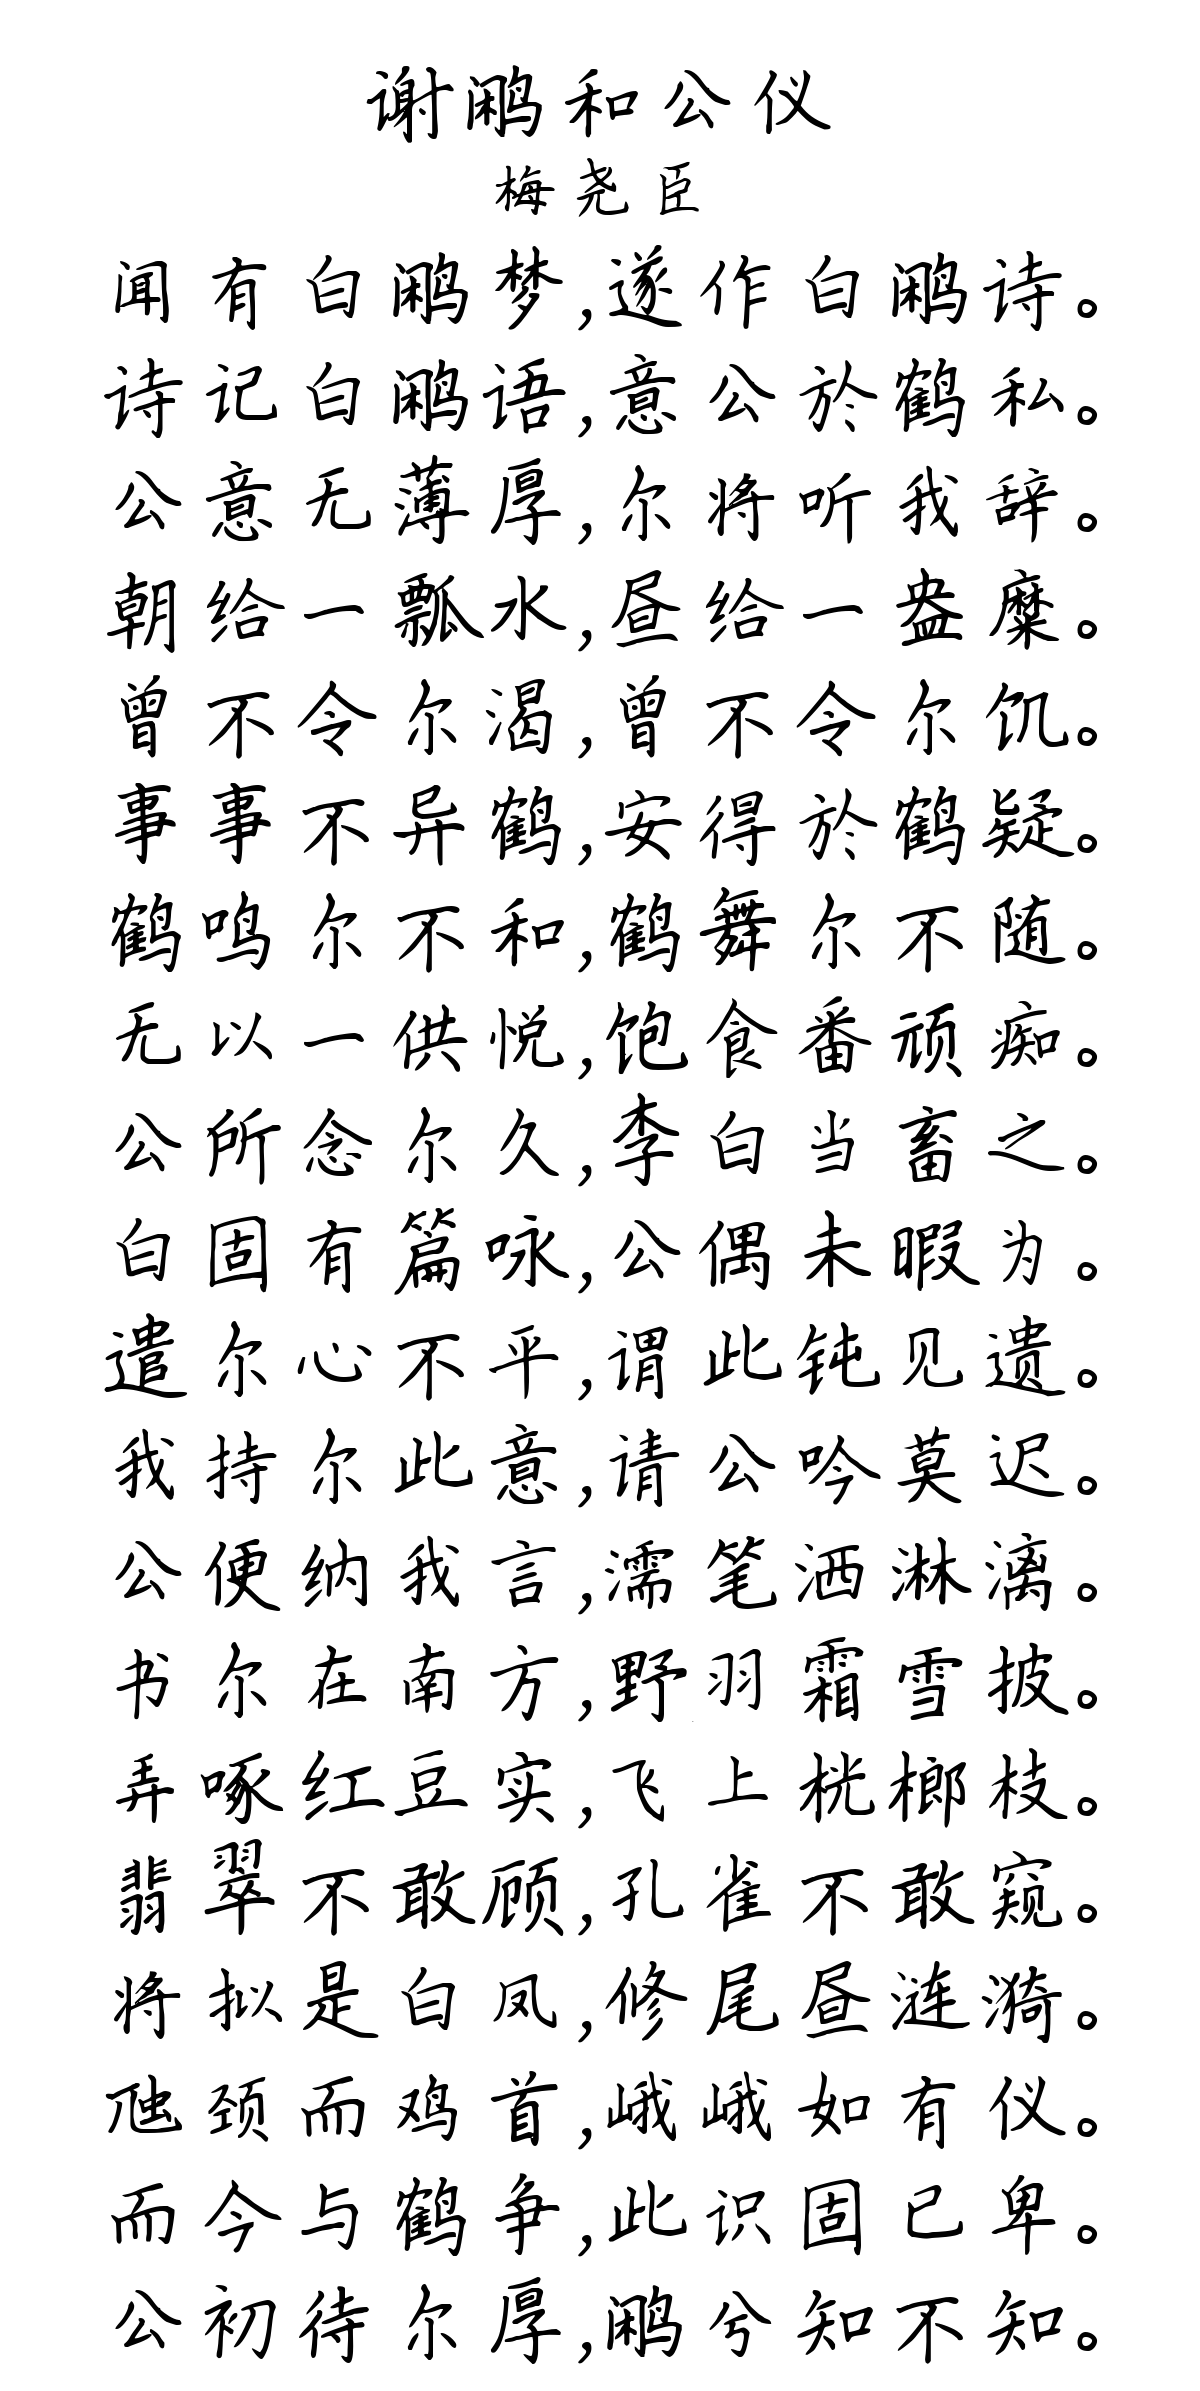 谢鹇和公仪
梅尧臣
闻有白鹇梦,遂作白鹇诗。
诗记白鹇语,意公於鹤私。
公意无薄厚,尔将听我辞。
朝给一瓢水,昼给一盎糜。
曾不令尔渴,曾不令尔饥。
事事不异鹤,安得於鹤疑。
鹤鸣尔不和,鹤舞尔不随。
无以一供悦,饱食番顽痴。
公所念尔久,李白当畜之。
白固有篇咏,公偶未暇为。
遣尔心不平,谓此钝见遗。
我持尔此意,请公吟莫迟。
公便纳我言,濡笔洒淋漓。
书尔在南方,野羽霜雪披。
弄啄红豆实,飞上桄榔枝。
翡翠不敢顾,孔雀不敢窥。
将拟是白凤,修尾昼涟漪。
虺颈而鸡首,峨峨如有仪。
而今与鹤争,此识固已卑。
公初待尔厚,鹇兮知不知。